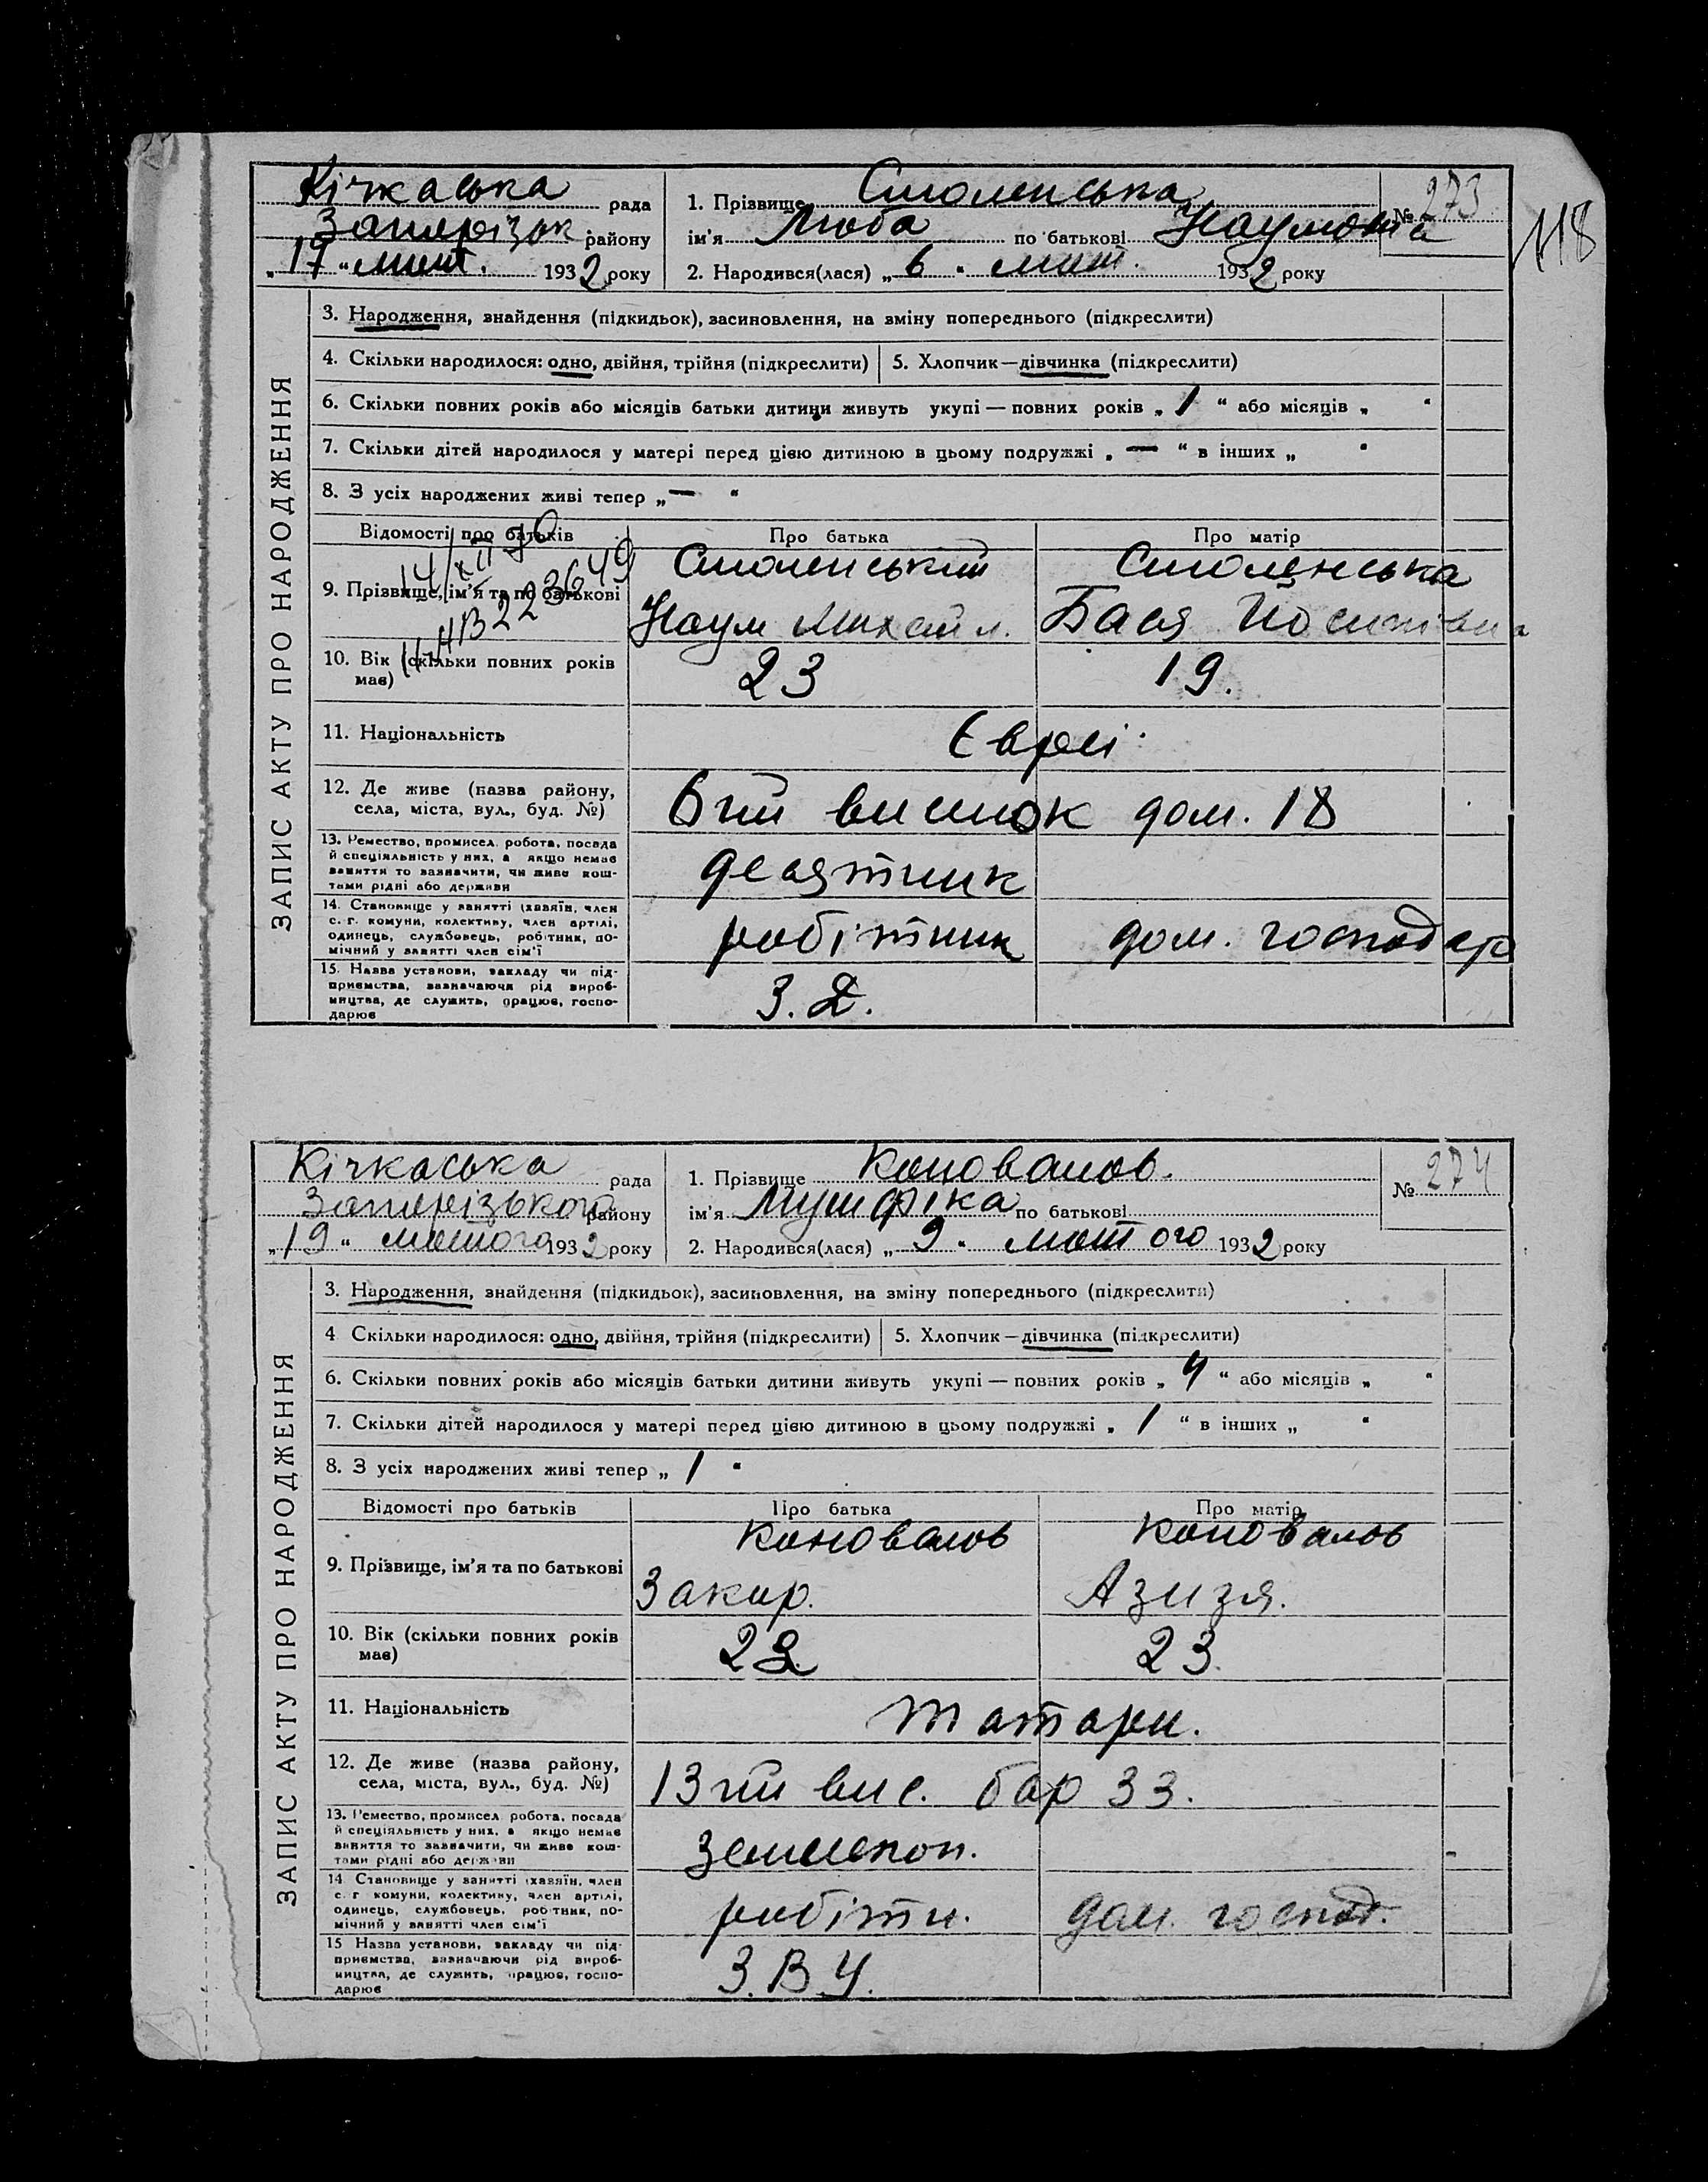 118
Кічкаська рада
Запорізьк. району
„17" лют. 1932 року
1. Прізвище Смоленська
№ 273
ім'я Люба по батькові Наумовна
2. Народився(лася) „6" лют. 1932 року
ЗАПИС АКТУ ПРО НАРОДЖЕННЯ
3. Народження, знайдення (підкидьок), засиновлення, на зміну попереднього (підкреслити)
4. Скільки народилося: одно, двійня, трійня (підкреслити) 5. Хлопчик—дівчинка (підкреслити)
6. Скільки повних років або місяців батьки дитини живуть укупі — повних років „1" або місяців „ "
7. Скільки дітей народилося у матері перед цією дитиною в цьому подружжі „—" в інших „ "
8. З усіх народжених живі тепер „—"
Відомості про батьків Про батька Про матір
9. Прізвище, ім'я та по батькові
Смоленський Смоленська
Наум Михайл. Бася Йосипівна
10. Вік (скільки повних років має) 23 19.
11. Національність Євреї
12. Де живе (назва району, села, міста, вул., буд. №) 6ий висилок дом. 18
13. Ремество, промисел, робота, посада
й спеціяльність у них, а якщо немає
заняття то зазначити, чи живе кош-
тами рідні або держави
десятник
14. Становище у занятті (хазяїн, член
с.-г. комуни, колективу, член артілі,
одинець, службовець, робітник, по-
мічний у занятті член сім'ї
робітник дом. господар
15. Назва установи, закладу чи під-
приємства, зазначаючи рід вироб-
ництва, де служить, працює, госпо-
дарює
З. Д.
Кічкаська рада
Запорізького району
„19" лютого 1932 року
1. Прізвище Коновалов.
№ 274
ім'я Мушфіка по батькові
2. Народився(лася) „9" лютого 1932 року
ЗАПИС АКТУ ПРО НАРОДЖЕННЯ
3. Народження, знайдення (підкидьок), засиновлення, на зміну попереднього (підкреслити)
4 Скільки народилося: одно, двійня, трійня (підкреслити) 5. Хлопчик—дівчинка (підкреслити)
6. Скільки повних років або місяців батьки дитини живуть укупі — повних років „4" або місяців „ "
7. Скільки дітей народилося у матері перед цією дитиною в цьому подружжі „1" в інших „ "
8. З усіх народжених живі тепер „1"
Відомості про батьків Про батька Про матір
9. Прізвище, ім'я та по батькові
Коновалов Коновалов
Закир. Азизя.
10. Вік (скільки повних років має) 23.
11. Національність татари.
12. Де живе (назва району, села, міста, вул., буд. №) 13ий вис. бар 33.
13. Ремество, промисел, робота, посада
й спеціяльність у них, а якщо немає
заняття то зазначити, чи живе кош-
тами рідні або держави
землекоп.
14. Становище у занятті (хазяїн, член
с. г комуни, колективу, член артілі,
одинець, службовець, робітник, по-
мічний у занятті член сім'ї
робітн. дом. господ.
15 Назва установи, закладу чи під-
приємства, зазначаючи рід вироб-
ництва, де служить, працює, госпо-
дарює
З. В. У.